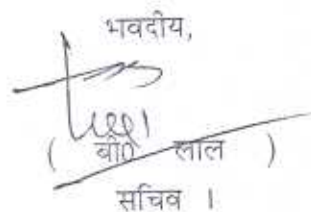 भवदीय,
( बी0 लाल )
सचिव ।